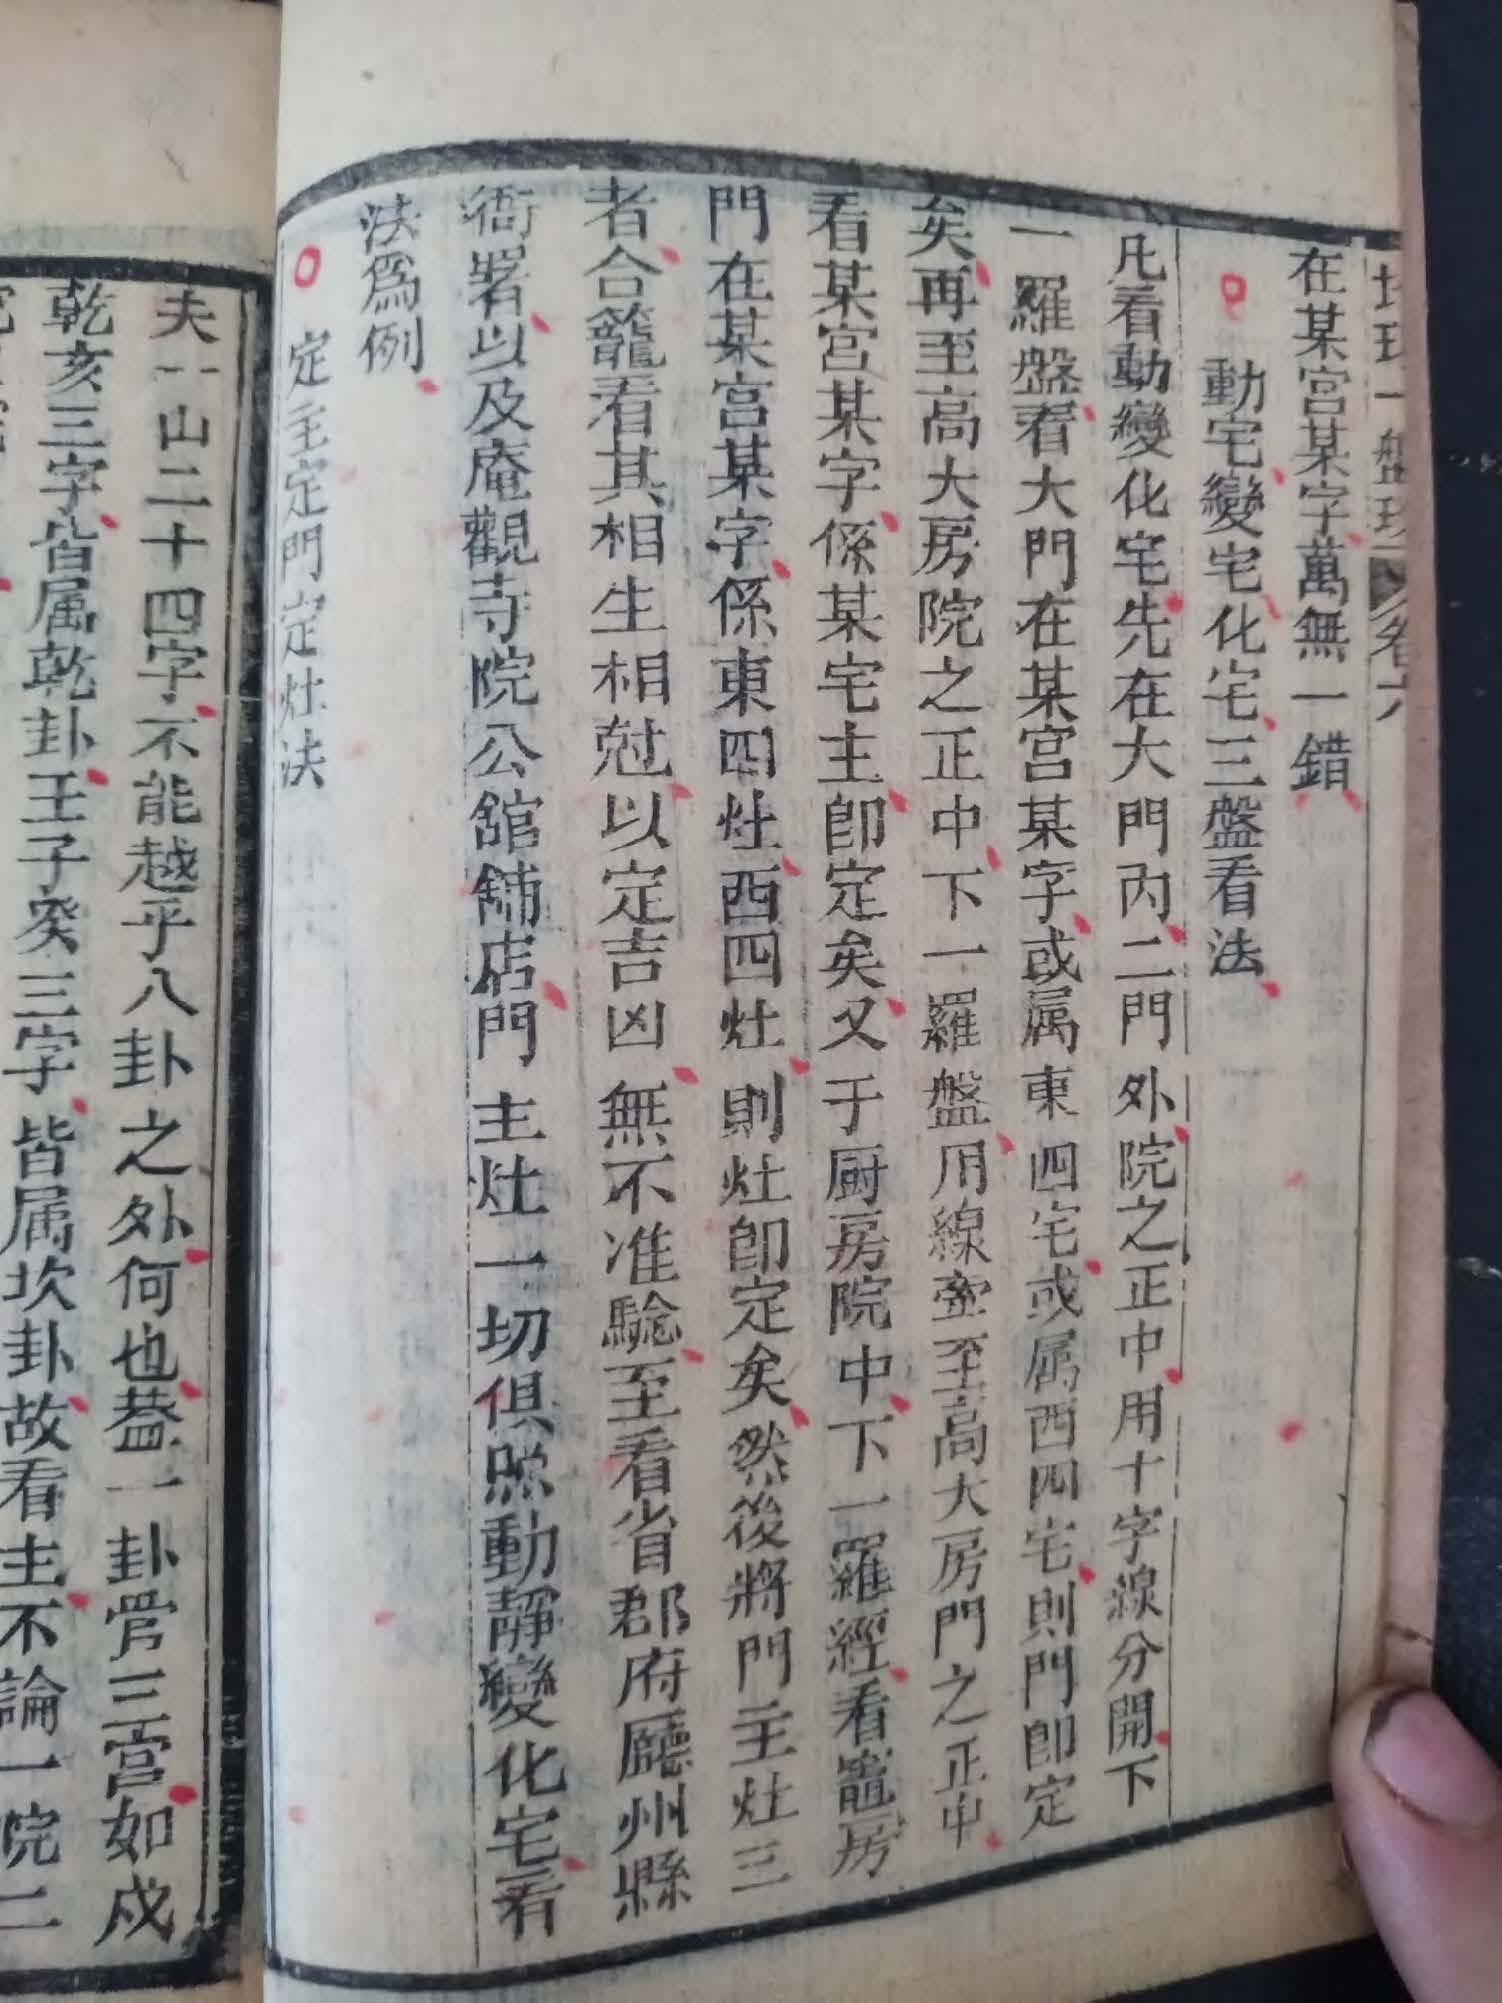 在某宮某字萬無一錯
動宅變宅化宅三盤看法
凡看動變化宅先在大門内二門外院之正中用十字線分開下
一羅盤看大門在某宮某字或属東四宅或属西四宅則門即定
矣再至高大房院之正中下一羅盤用線牽至高大房門之正中
看某宮某字係某宅主即定矣又于厨房院中下一羅經看竈房
門在某宮某字係東四灶西四灶則灶即定矣然後將門主灶三
者合籠看其相生相尅以定吉凶無不准驗至看省郡府廳州縣
衙署以及庵觀寺院公舘舖店門主灶一切俱照動靜變化宅看
法爲例
定主定門定灶法
夫一山二十四字不能越乎八卦之外何也葢一卦管三宮如戍
乾亥三字皆属乾卦壬子癸三字皆属坎卦故看主不論一院二